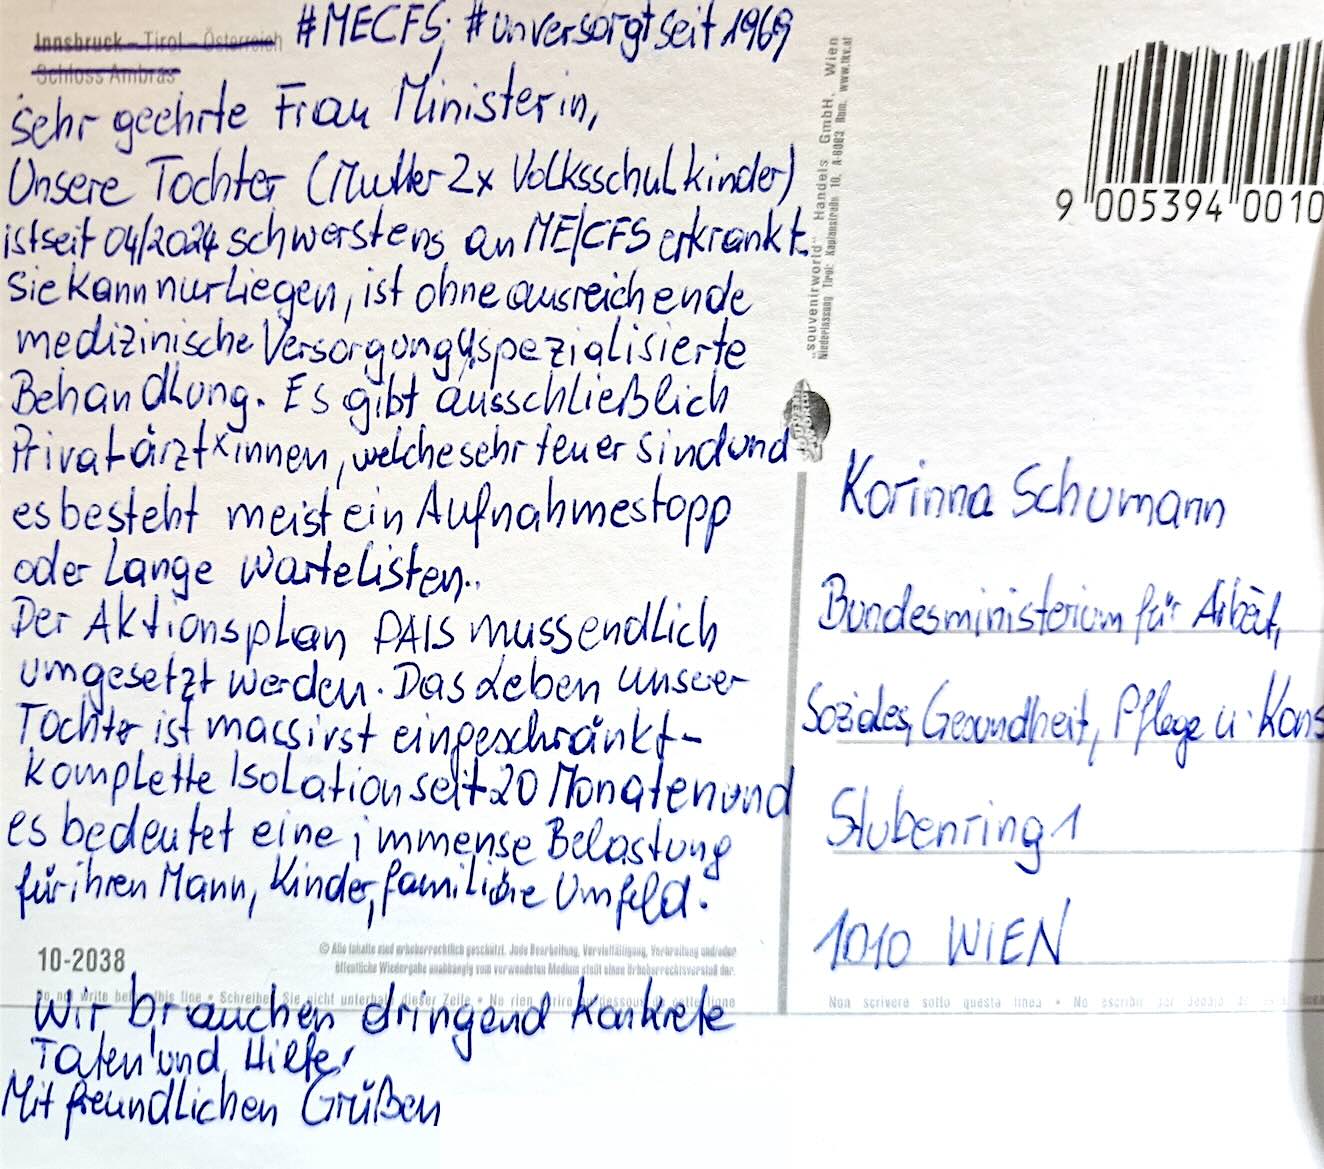 Innsbruck – Tirol – Österreich
Schloss Ambras
#MECFS; #unversorgtseit1969
Sehr geehrte Frau Ministerin,
Unsere Tochter (Mutter 2x Volksschulkinder)
ist seit 04/2024 schwerstens an ME/CFS erkrankt.
Sie kann nur Liegen, ist ohne ausreichende
medizinische Versorgung u spezialisierte
Behandlung. Es gibt ausschließlich
Privatärzt*innen, welche sehr teuer sind und
es besteht meist ein Aufnahmestopp
oder Lange Wartelisten..
Der Aktionsplan PAIS muss endlich
umgesetzt werden. Das Leben unserer
Tochter ist massivst eingeschränkt-
komplette Isolation seit 20 Monaten und
es bedeutet eine immense Belastung
für ihren Mann, Kinder, familiäre Umfeld.
10-2038
© Alle Inhalte sind urheberrechtlich geschützt. Jede Bearbeitung, Vervielfältigung, Verbreitung und/oder
öffentliche Wiedergabe unabhängig vom verwendeten Medium stellt einen Urheberrechtsverstoß dar.
Do not write below this line • Schreiben Sie nicht unterhalb dieser Zeile • Ne rien écrire au-dessous de cette ligne
Wir brauchen dringend konkrete
Taten und Hilfe!
Mit freundlichen Grüßen
"souvenirworld" Handels GmbH, Wien
Niederlassung Tirol: Kaplanstraße 10, A-6063 Rum, www.tkv.at
9 005394 0010
Korinna Schumann
Bundesministerium für Arbeit,
Soziales, Gesundheit, Pflege u. Kons
Stubenring 1
1010 WIEN
Non scrivere sotto questa linea • No escribir por debajo de